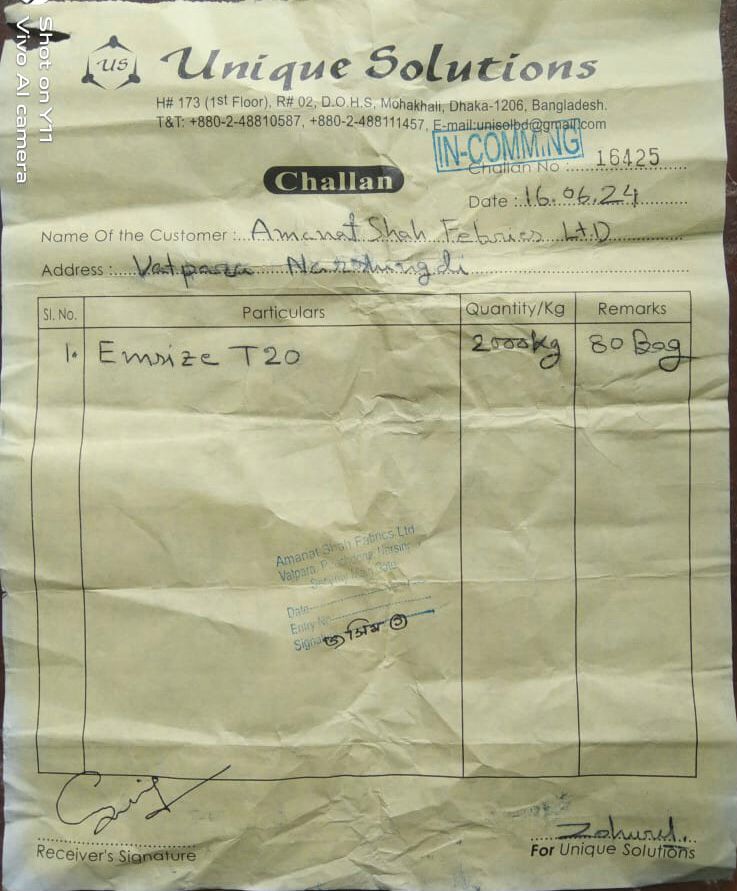 Shot on Y11
Vivo AI camera
US
Unique Solutions
H# 173 (1st Floor), R# 02, D.O.H.S, Mohakhali, Dhaka-1206, Bangladesh.
T&T: +880-2-48810587, +880-2-488111457, E-mail:unisolbd@gmail.com
IN-COMMING
Challan No :.... 16425
Challan
Date :..16.06.24
Name Of the Customer :.. Amanat Shah Febrics Ltd
Address :.... Vatpara Narshingdi
Sl. No. Particulars Quantity/Kg Remarks
1. Emsize T20 2000kg 80 Bag
Amanat Shah Fabrics Ltd
Vatpara,
Security Main Gate
Date
Entry No
Zohurul
Receiver's Signature
For Unique Solutions